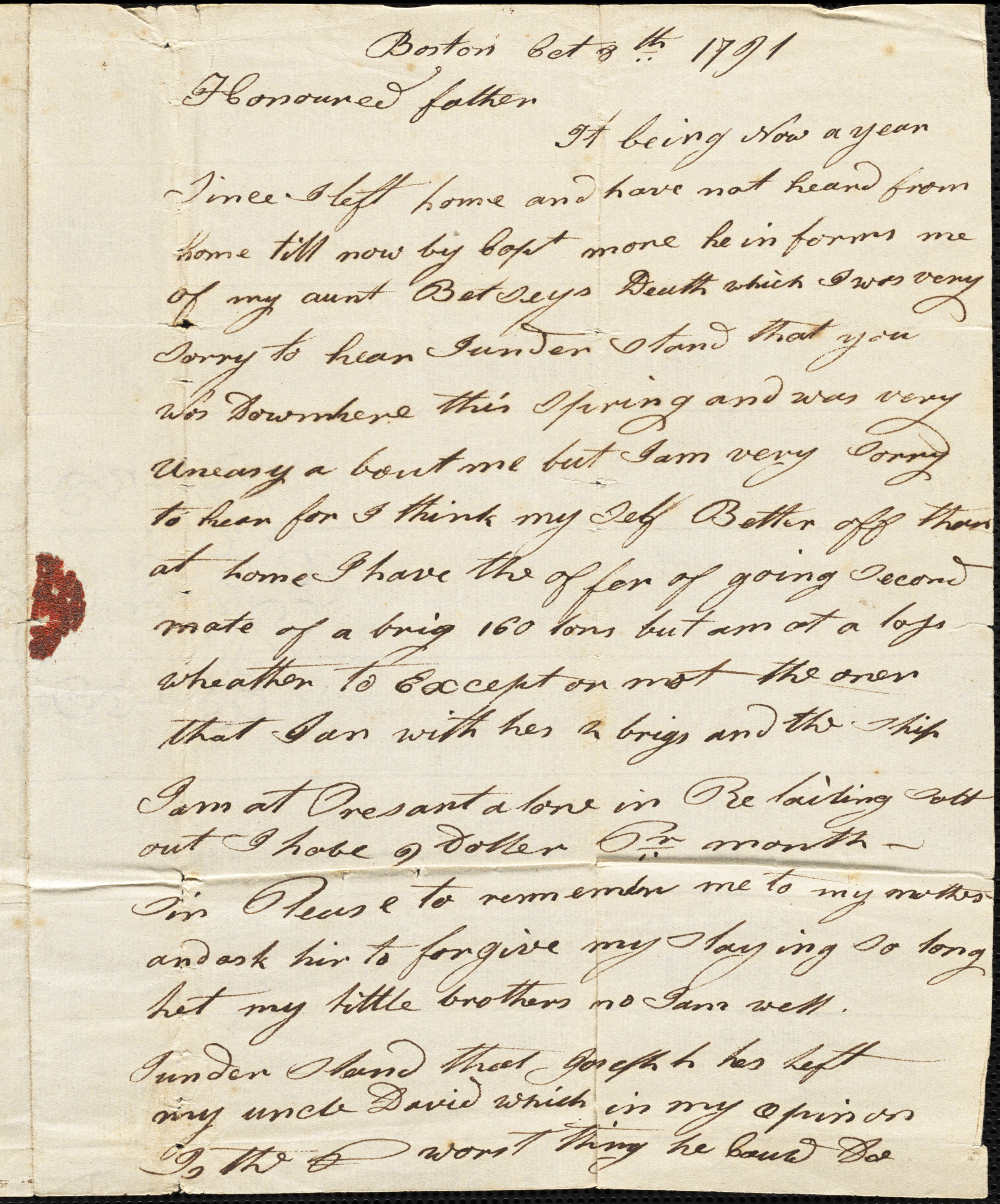 Boston Oct 8th 1791
Honoured father
It being Now a year
Since I left home and have not heard from
home till now by Capt more he in forms me
of my aunt Betseys Death which I was very
Sorry to hear I under Stand that you
was Down here this Spring and was very
Uneasy a bout me but I am very Sorry
to hear for I think my Self Better off then
at home I have the offer of going Second
mate of a brig 160 tons but am at a loss
wheather to Except or not the oner
that I am with hes 2 brigs and the Ship
I am at Presant a lone in Re tailing Salt
out I have 9 Doller Pr month –
Sir Please to remember me to my mother
and ask hir to forgive my Staying So long
let my little brothers no I am well.
I under Stand that Joseph hes left
my uncle David which in my opinon
Is the worst thing he Could Do